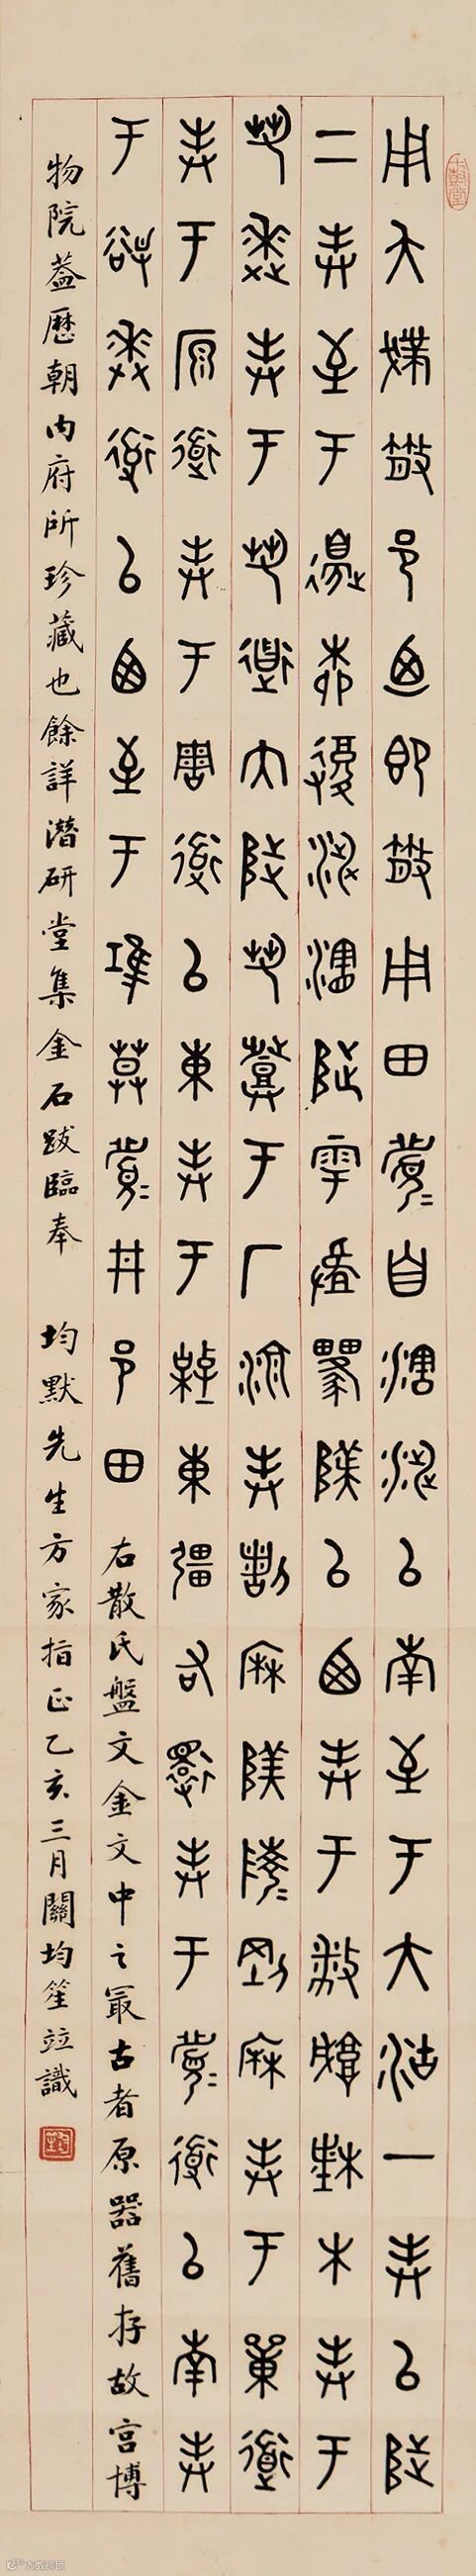 用夨撲散邑廼即散用田眉自瀗涉以南至于大沽一奉以陟
二奉至于邊柳復涉瀗陟雩隩以西奉于城楮木奉于
芻逨奉于芻道內陟芻登于厂湶奉割陵剛奉于單道
奉于原道奉于周道以東奉于東彊右還奉于眉道以南奉
于逨道以西至于鴻莫眉井邑田 右散氏盤文金文中之冣古者原器舊存故宮博
物院蓋歷朝內府所珍藏也餘詳潛研堂集金石跋臨奉 均默先生方家指正乙亥三月關均笙竝識